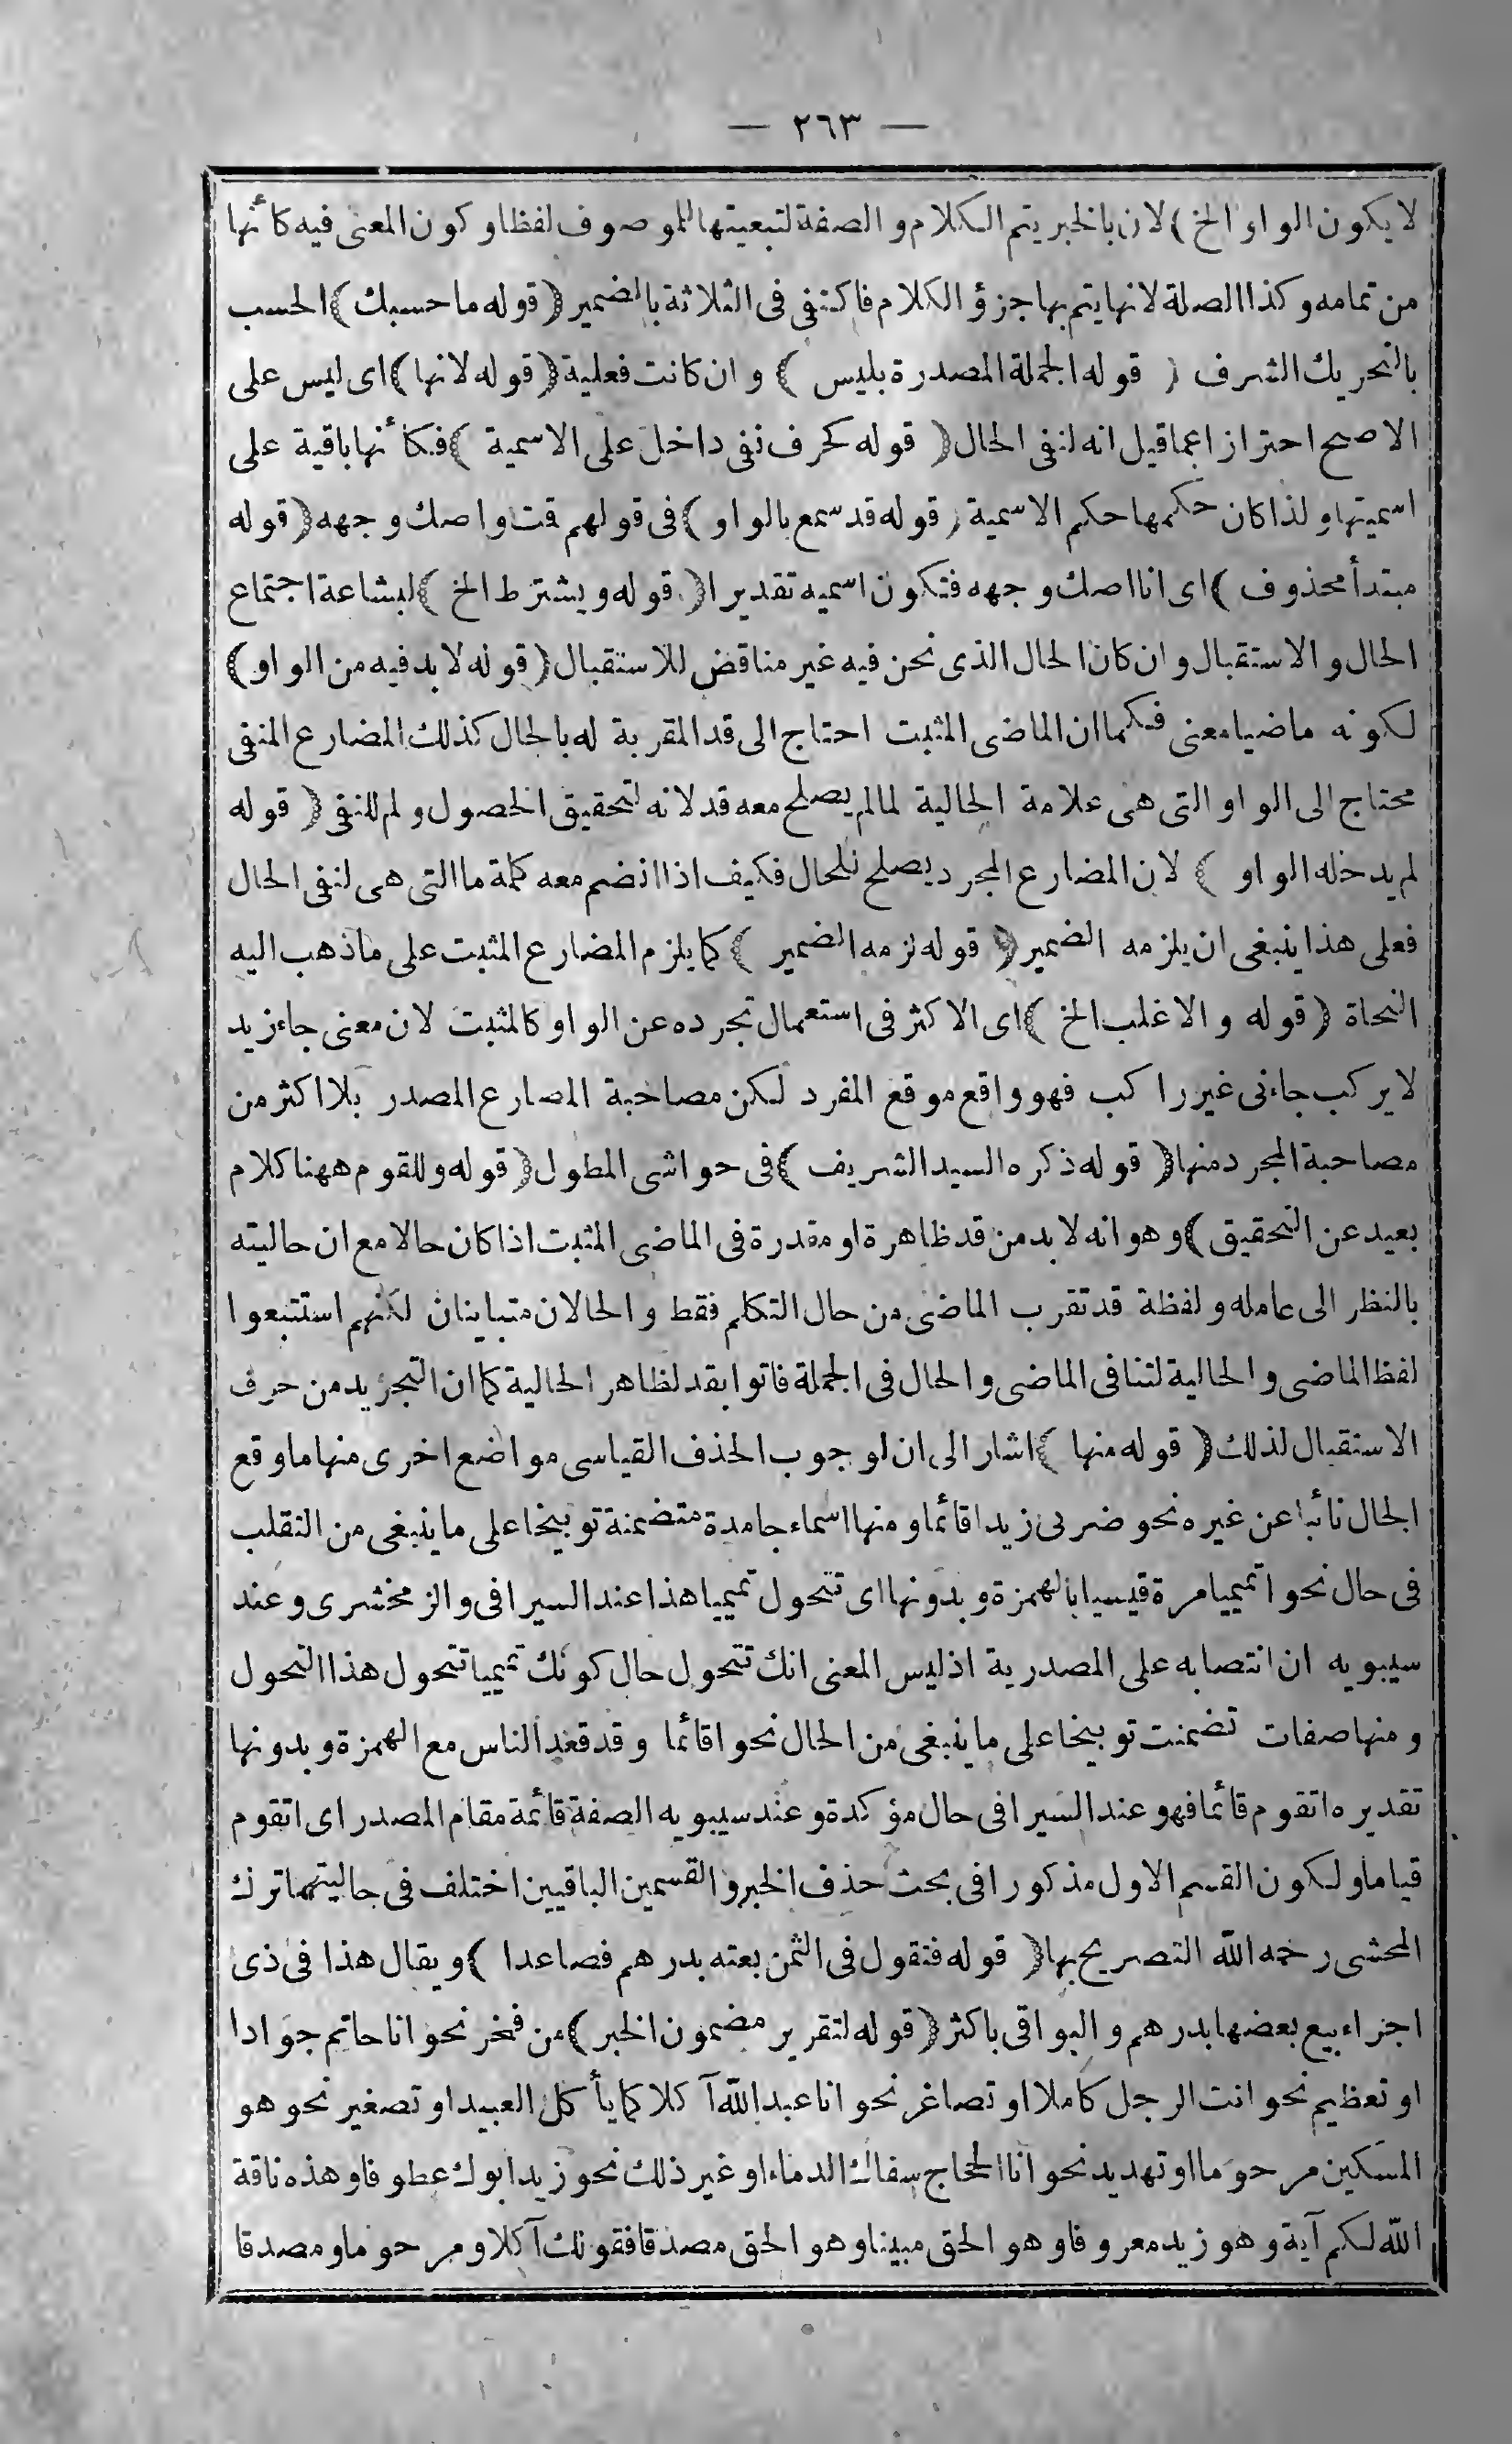 — ٢٦٣ —
لا يكون الواو الخ) لان بالخبر يتم الكلام والصفة لتبعيتها للموصوف لفظا وكون المعنى فيه كأنها
من تمامه وكذا الصلة لانها يتم بها جزؤ الكلام فاكتفى فى الثلاثة بالضمير (قوله ما حسبك) الحسب
بالتحريك الشرف (قوله الجملة المصدرة بليس) وان كانت فعلية (قوله لانها) اى ليس على
الاصح احترازا عما قيل انه لنفى الحال (قوله كحرف نفى داخل على الاسمية) فكأنها باقية على
اسميتها ولذا كان حكمها حكم الاسمية (قوله قد سمع بالواو) فى قولهم قت واصك وجهه (قوله
مبتدأ محذوف) اى انا اصك وجهه فتكون اسميه تقديرا (قوله ويشترط الخ) لبشاعة اجتماع
الحال والاستقبال وان كان الحال الذى نحن فيه غير مناقض للاستقبال (قوله لا بد فيه من الواو)
لكونه ماضيا معنى فكما ان الماضى المثبت احتاج الى قد المقربة له بالحال كذلك المضارع المنفى
محتاج الى الواو التى هى علامة الحالية لما لم يصلح معه قد لانه لتحقيق الحصول ولم للنفى (قوله
لم يدخله الواو) لان المضارع المجرد يصلح للحال فكيف اذا انضم معه كلمة ما التى هى لنفى الحال
فعلى هذا ينبغى ان يلزمه الضمير (قوله لزمه الضمير) كما يلزم المضارع المثبت على ما ذهب اليه
النحاة (قوله والاغلب الخ) اى الاكثر فى استعمال تجرده عن الواو كالمثبت لان معنى جاء زيد
لا يركب جاءنى غير راكب فهو واقع موقع المفرد لكن مصاحبة المضارع المصدر بلا اكثر من
مصاحبة المجرد منها (قوله ذكره السيد الشريف) فى حواشى المطول (قوله وللقوم ههنا كلام
بعيد عن التحقيق) وهو انه لا بد من قد ظاهرة او مقدرة فى الماضى المثبت اذا كان حالا مع ان حاليته
بالنظر الى عامله ولفظة قد تقرب الماضى من حال التكلم فقط والحالان متباينان لكنهم استتبعوا
لفظ الماضى والحالية لتنافى الماضى والحال فى الجملة فاتوا بقد لظاهر الحالية كما ان التجريد من حرف
الاستقبال لذلك (قوله منها) اشار الى ان لوجوب الحذف القياسى مواضع اخرى منها ما وقع
الحال نائبا عن غيره نحو ضربى زيدا قائما ومنها اسماء جامدة متضمنة توبيخا على ما ينبغى من التقلب
فى حال نحو اتميميا مرة قيسيا بالهمزة وبدونها اى تتحول تميميا هذا عند السيرافى والزمخشرى وعند
سيبويه ان انتصابه على المصدرية اذ ليس المعنى انك تتحول حال كونك تميميا تتحول هذا التحول
ومنها صفات تضمنت توبيخا على ما ينبغى من الحال نحو اقائما وقد قعد الناس مع الهمزة وبدونها
تقديره اتقوم قائما فهو عند السيرافى حال مؤكدة وعند سيبويه الصفة قائمة مقام المصدر اى اتقوم
قياما ولكون القسم الاول مذكورا فى بحث حذف الخبر والقسمين الباقيين اختلف فى حاليتهما ترك
المحشى رحمه الله التصريح بها (قوله فتقول فى الثمن بعته بدرهم فصاعدا) ويقال هذا فى ذى
اجزاء بيع بعضها بدرهم والبواقى باكثر (قوله لتقرير مضمون الخبر) من فخر نحو انا حاتم جوادا
او تعظيم نحو انت الرجل كاملا او تصاغر نحو انا عبد الله آكلا كما يأكل العبيد او تصغير نحو هو
المسكين مرحوما او تهديد نحو انا الحجاج سفاك الدماء او غير ذلك نحو زيد ابوك عطوفا وهذه ناقة
الله لكم آية وهو زيد معروفا وهو الحق مبينا وهو الحق مصدقا فقولك آكلا ومرحوما ومصدقا